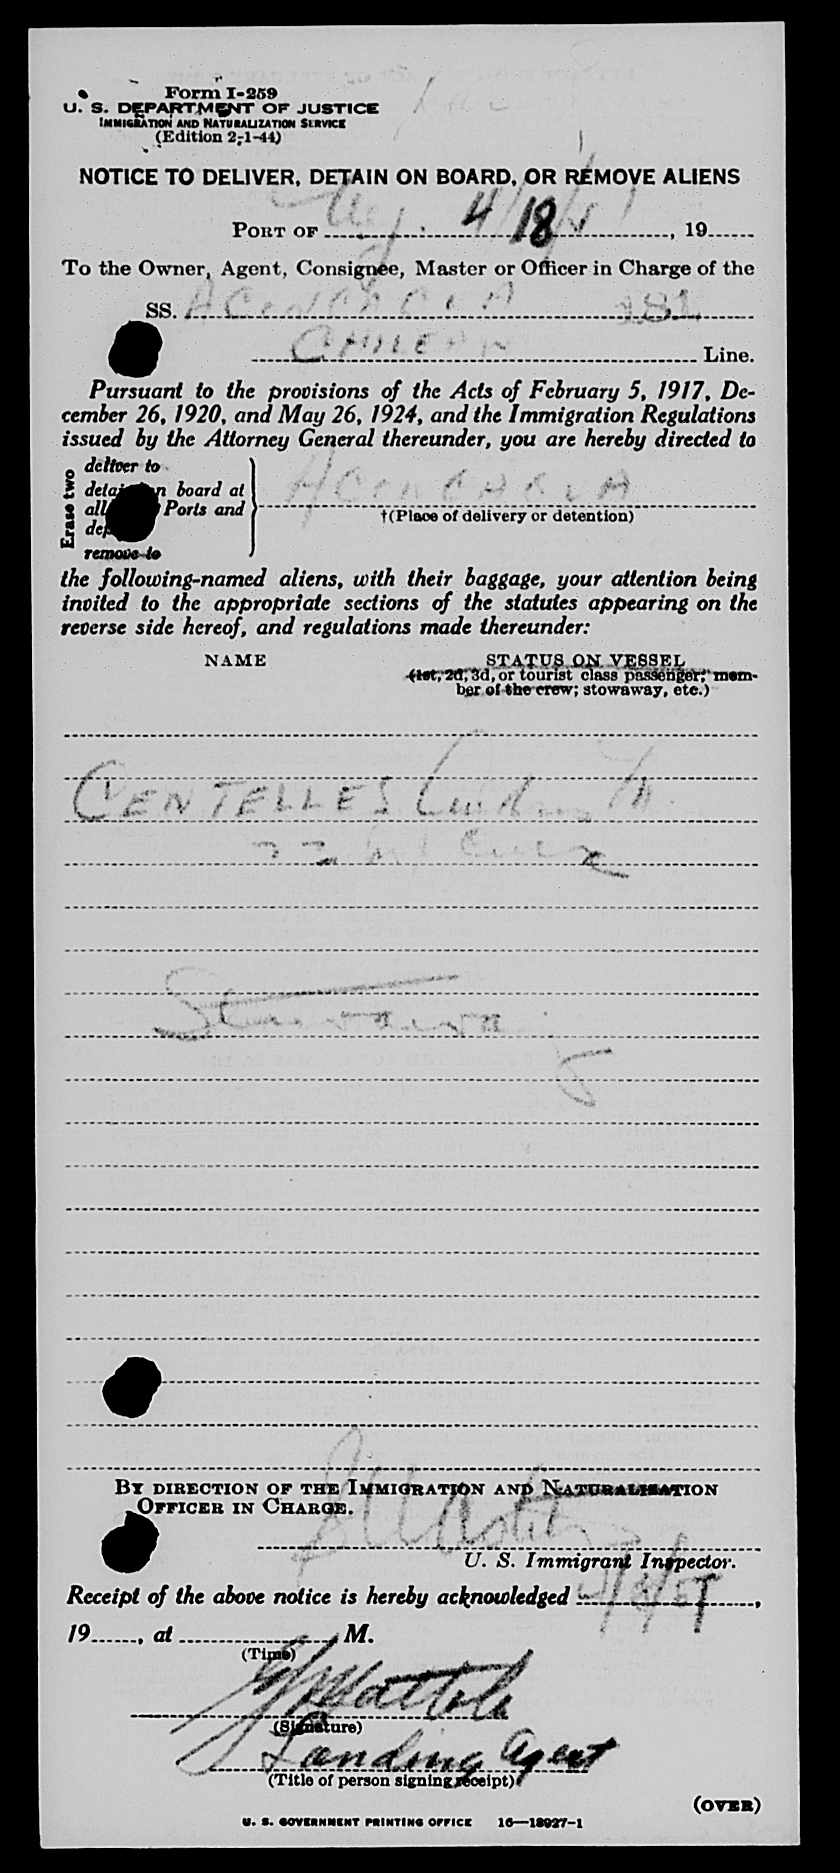 Form I-259
U. S. DEPARTMENT OF JUSTICE
IMMIGRATION AND NATURALIZATION SERVICE
(Edition 2-1-44)
NOTICE TO DELIVER, DETAIN ON BOARD, OR REMOVE ALIENS
PORT OF NY 4/18/51, 19
To the Owner, Agent, Consignee, Master or Officer in Charge of the
SS. ACONCAGUA 181
CHILEAN Line.
Pursuant to the provisions of the Acts of February 5, 1917, De-
cember 26, 1920, and May 26, 1924, and the Immigration Regulations
issued by the Attorney General thereunder, you are hereby directed to
Erase two
deliver to
detain on board at
all Ports and
remove to
ACONCAGUA
†(Place of delivery or detention)
the following-named aliens, with their baggage, your attention being
invited to the appropriate sections of the statutes appearing on the
reverse side hereof, and regulations made thereunder:
NAME STATUS ON VESSEL
(1st, 2d, 3d, or tourist class passenger; mem-
ber of the crew; stowaway, etc.)
CENTELLES M.
22
Stowaway
BY DIRECTION OF THE IMMIGRATION AND NATURALIZATION
OFFICER IN CHARGE.
U. S. Immigrant Inspector.
Receipt of the above notice is hereby acknowledged
19, at M.
(Time)
(Signature)
Landing Agent
(Title of person signing receipt)
(OVER)
U. S. GOVERNMENT PRINTING OFFICE 16—18927-1